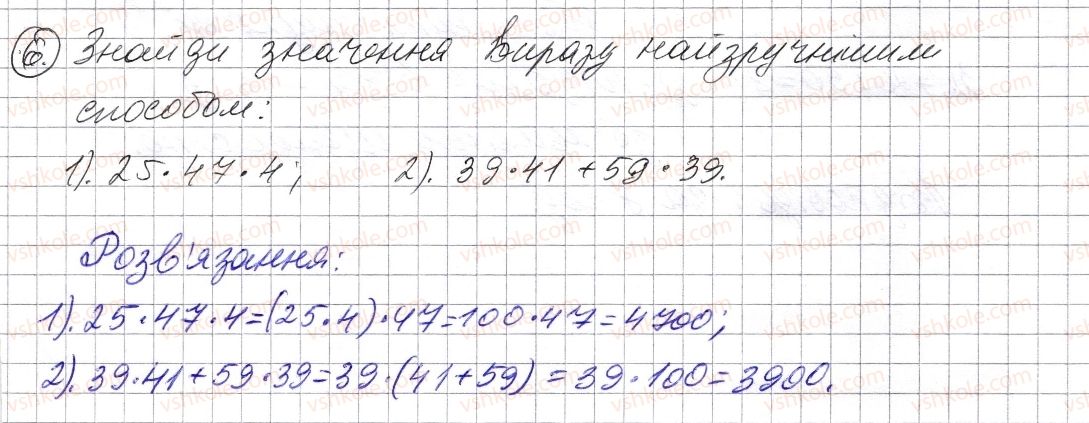 6. Знайди значення виразу найзручнішим
способом:
1). 25·47·4; 2). 39·41+59·39.
Розв'язання:
1). 25·47·4=(25·4)·47=100·47=4700;
2). 39·41+59·39=39·(41+59)=39·100=3900.